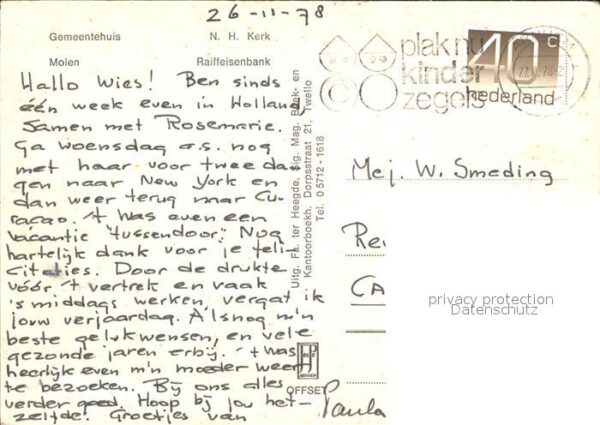 26-11-78
Gemeentehuis
N. H. Kerk
Molen
Raiffeisenbank
Hallo Wies! Ben sinds
één week even in Holland,
Samen met Rosemarie.
Ga woensdag a.s. nog
met haar voor twee da-
gen naar New York en
dan weer terug naar Cu-
racao. 't Was even een
vacantie "tussendoor". Nog
hartelijk dank voor je feli-
citaties. Door de drukte
vóór 't vertrek en vaak
's middags werken, vergat ik
jouw verjaardag. Alsnog m'n
beste gelukwensen, en vele
gezonde jaren erbij. 't was
heerlijk even m'n moeder weer
te bezoeken. Bij ons alles
verder goed. Hoop bij jou het-
zelfde! Groetjes van
Paula
Uitg. Fa. ter Heegde, Sig. Mag. Boek- en
Kantoorboekh. Dorpsstraat 21, Twello
Tel. 0 5712 - 1618
OFFSET
plak nu
kinder
zegels
40 c
nederland
Mej. W. Smeding
Re
CA
privacy protection
Datenschutz